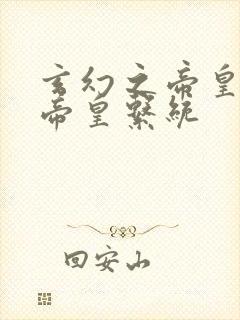 玄幻之帝皇
帝皇系统
回安山